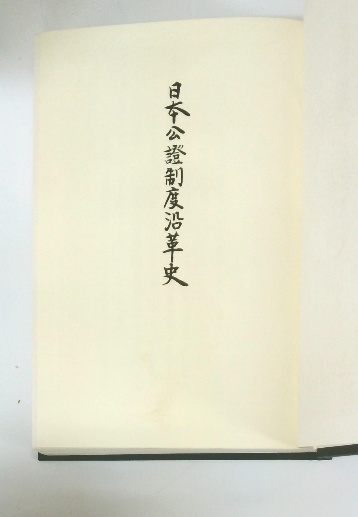 日本公證制度沿革史